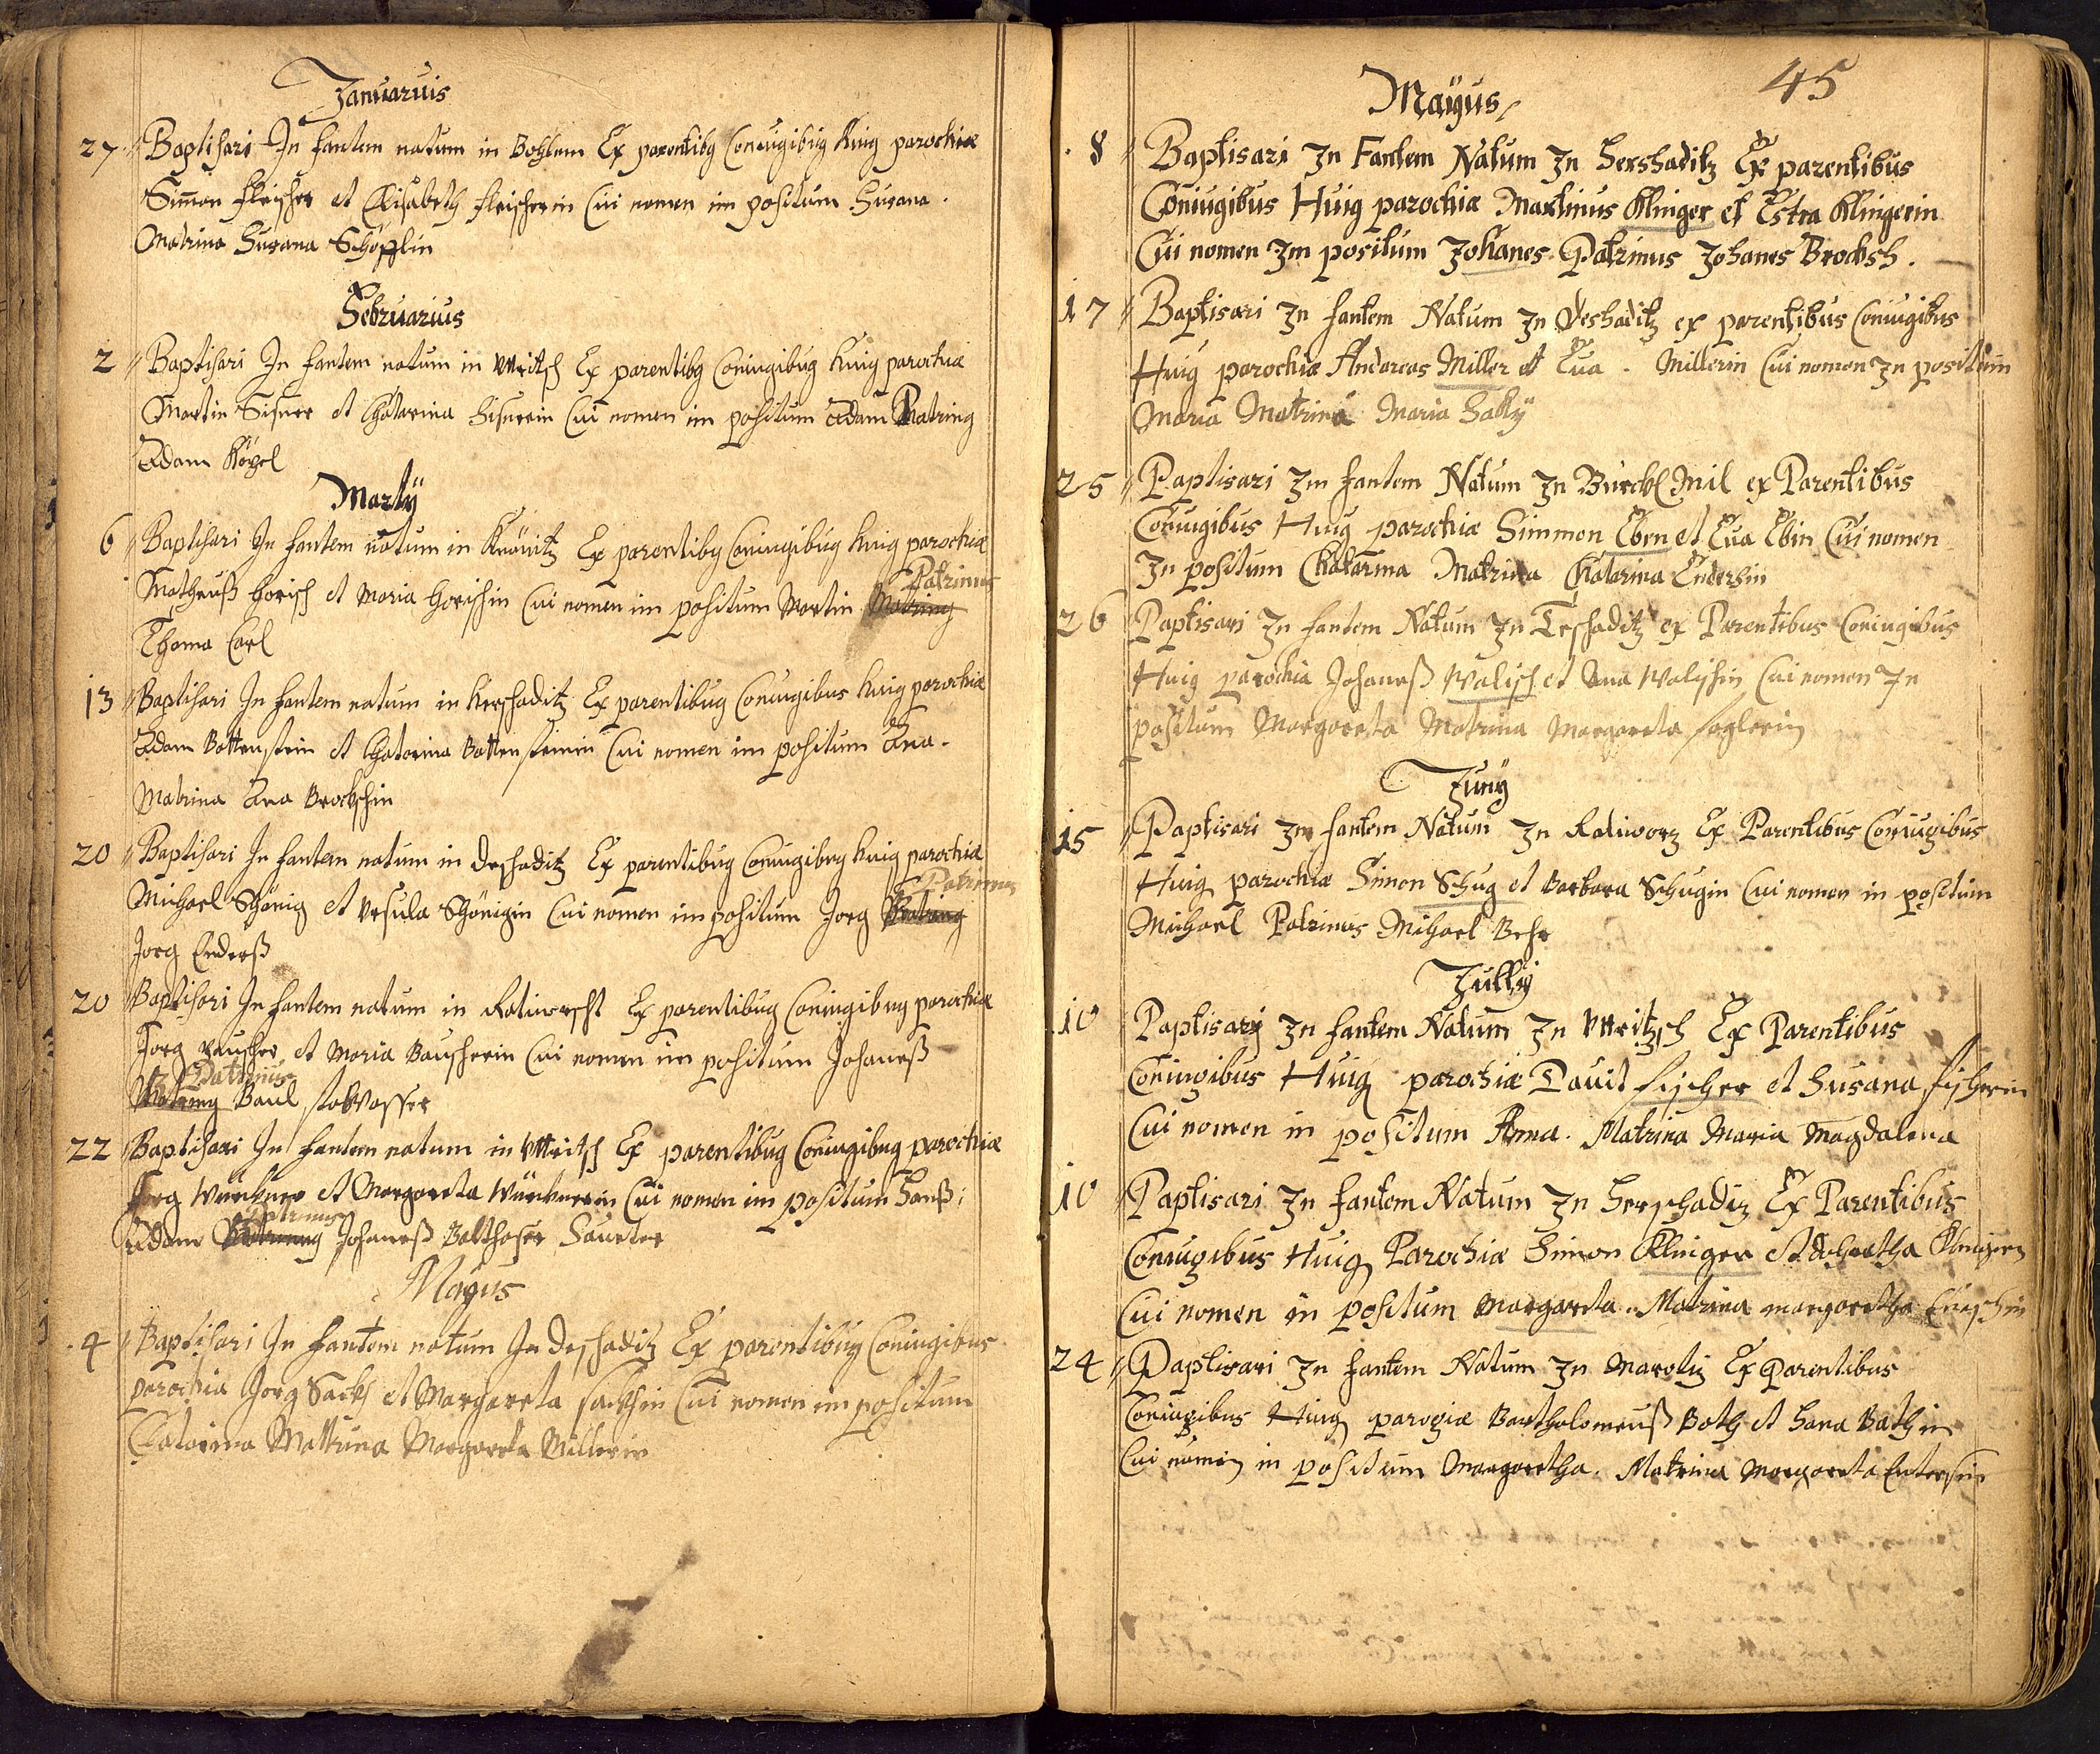 Januaruis
27 Baptisari In fantem natum in Bohlem Ex parentibg Coniugibug Huig parochiæ
Simon Fleischer et Elisabeth fleischerin Cui nomen im positum Susana.
Matrina Susana Schöpflin
Februarius
2 Baptisari In fantem natum in Uttritsch Ex parentibg Coniugibug Huig parochiæ
Martin et Chatarina Cui nomen im positum Adam Patring
Adam Kögel
Martÿ
6 Baptisari In fantem natum in Krönitz Ex parentibg Coniugibug Huig parochiæ
Matheuß Horisch et Maria Horischin Cui nomen im positum Martin Matring Patrinus
Thoma Carl
13 Baptisari In fantem natum in Herschaditz Ex parentibug Coniugibus Huig parochiæ
Adam Bottenstein et Chatarina Bottensteinin Cui nomen im positum Ana.
Matrina Ana Brockschin
20 Baptisari In fantem natum in deschaditz Ex parentibug Coniugibug Huig parochiæ
Michael Schönig et Ursula Schönigin Cui nomen im positum Jorg Matring Patrinus
Jorg Enderß
20 Baptisari In fantem natum in Ratiworscht Ex parentibug Coniugibug parochiæ
Jorg Bauscher et Maria Bauscherin Cui nomen im positum Johaneß
Matring Patrinus Baul stoBwasser
22 Baptisari In fantem natum in Uttritsch Ex parentibug Coniugibug parochiæ
Jorg et Margareta Cui nomen im positum Hanß:
Adam Matring Patrinus Johaneß Balthaser Sauerter
Mayus
4 Baptisari In fantem natum In deschaditz Ex parentibug Coniugibus
parochia Jorg Sacks et Margareta sacksin Cui nomen im positum
Catarina Mattrina Margareta Millerin
45
Maÿus
8 Baptisari Jn Fantem Natum Jn Hershaditz Ex parentibus
Coniugibus Huig parochiæ Martinus Klinger et Estra Klingerin
Cui nomen Jm positum Johanes Patrinus Johanes Brocksh.
17 Baptisari Jn fantem Natum Jn Deshaditz ex parentibus Coniugibus
Huig parochiæ Andareas Miller et Eua. Millerin Cui nomen Jn positum
Maria Matrina Maria
25 Paptisari Jm fantem Natum Jn Burckl Mil ex Parentibus
Coniugibus Huig parochiæ Simmon Eben et Eua Ebin Cui nomen
Jn positum Chatarina Matrina Chatarina Endersin
26 Paptisari Jn fantem Natum Jn Teschaditz ex Parentibus Coniugibus
Huig parochia Johaneß Walisch et Ana Walischin Cui nomen Jn
positum Margareta Matrina Margareta foglerin
Junÿ
15 Paptisari Jm fantem Natum Jn Ratiworz Ex Parentibus Coniugibus
Huig parochiæ Simon Schug et Barbara Schugin Cui nomen in positum
Michael Patrinus Mihael Behr
Jullÿ
10 Paptisary Jn fantem Natum Jn Uttritzsch Ex Parentibus
Coniugibus Huig parochiæ Dauit fischer et Susana fischerin
Cui nomen in positum Anna. Matrina Maria Magdalena
10 Paptisari Jn fantem Natum Jn Herschaditz Ex Parentibus
Coniugibus Huig Parochiæ Simon Klinger et Klingern
Cui nomen in positum Margareta. Matrina margaretha
24 Paptisari Jn fantem Natum Jn Marotiz Ex Parentibus
Coniugibus Huig parogiæ Bartholomeuß Bath et Hana Bathin
Cui nomin in positum Margaretha. Matrina Margareta Entersin